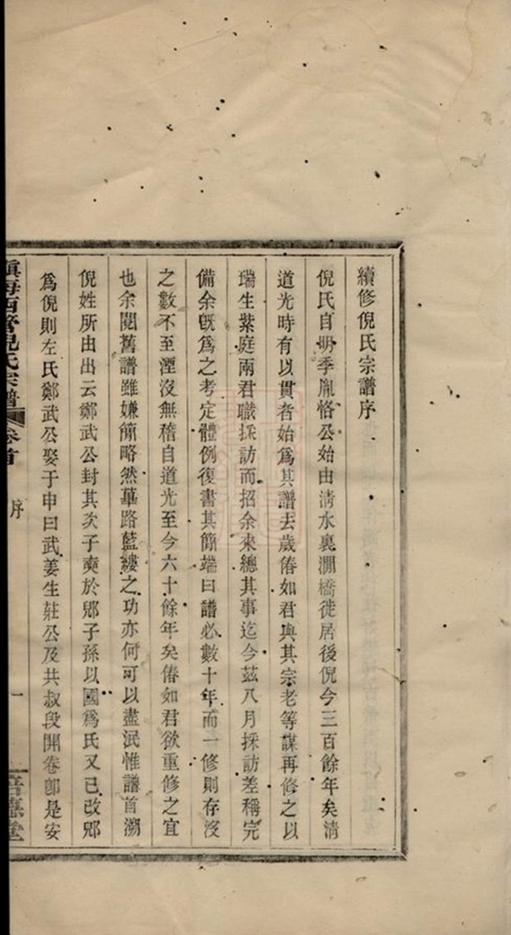 續修倪氏宗譜序
倪氏自明季胤恪公始由清水裏澗橋徙居後倪今三百餘年矣清
道光時有以貫者始爲其譜去歲偆如君與其宗老等謀再修之以
瑞生紫庭兩君職採訪而招余來總其事迄今茲八月採訪差稱完
備余旣爲之考定體例復書其簡端曰譜必數十年而一修則存沒
之數不至湮沒無稽自道光至今六十餘年矣偆如君欲重修之宜
也余閱舊譜雖嫌簡略然蓽路藍縷之功亦何可以盡泯惟譜首溯
倪姓所由出云鄭武公封其次子奭於郳子孫以國爲氏又已改郳
爲倪則左氏鄭武公娶于申曰武姜生莊公及共叔段開卷卽是安
鎮海西管倪氏宗譜 卷首 序 一